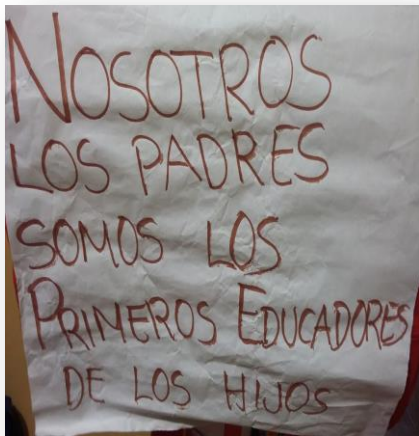 NOSOTROS
LOS PADRES
SOMOS LOS
PRIMEROS EDUCADORES
DE LOS HIJOS